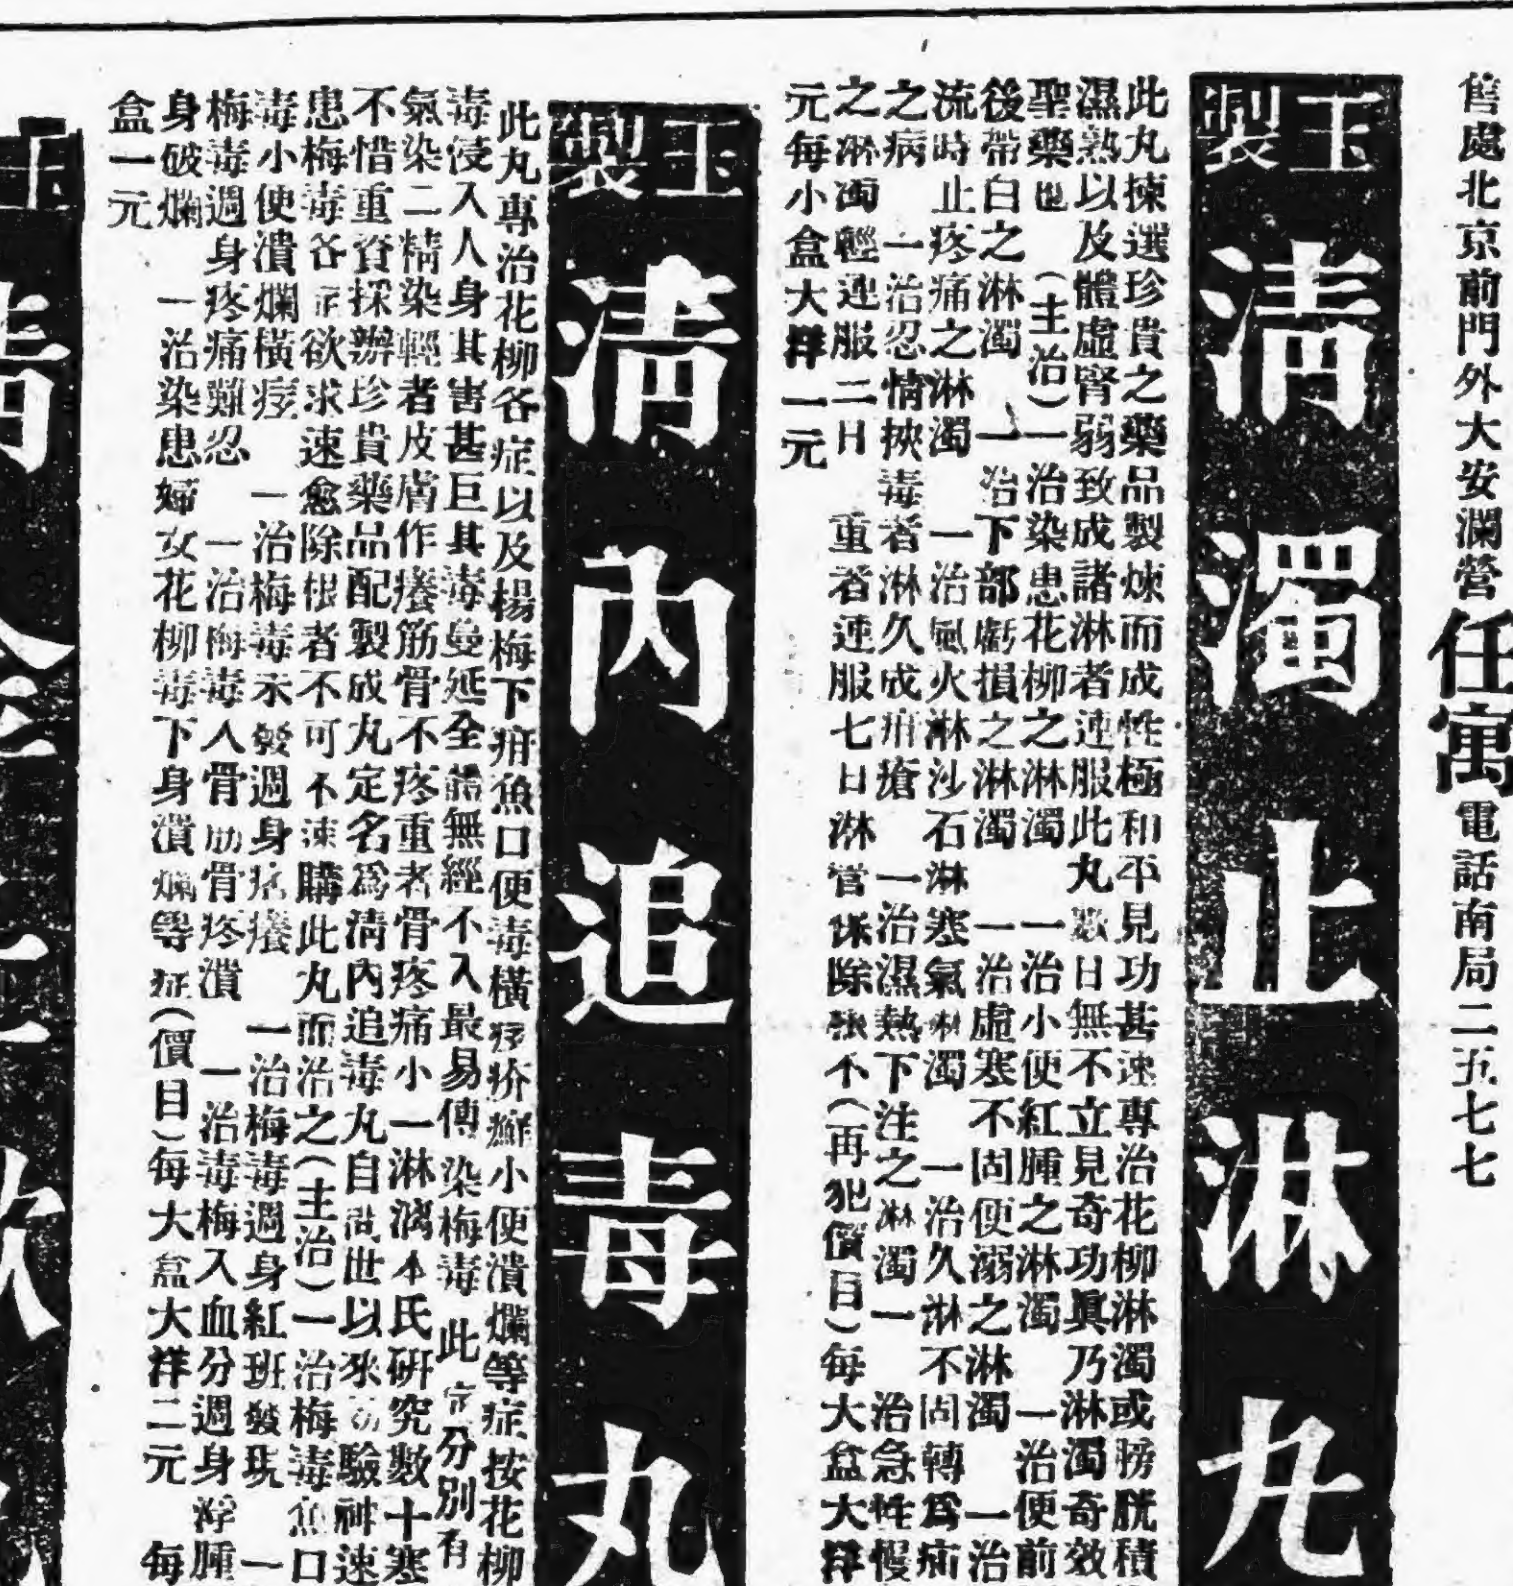 售處北京前門外大安瀾營任寓電話南局二五七七
玉製
清濁止淋丸
此丸揀選珍貴之藥品製煉而成性極和平見功甚速專治花柳淋濁或膀胱積
濕熟以及體虛腎弱致成諸淋者連服此丸數日無不立見奇功眞乃淋濁奇效
聖藥也 (主治)一治染患花柳之淋濁 一治小便紅腫之淋濁 一治便前
後帶白之淋濁 一治下部虧損之淋濁 一治虛寒不固便溺之淋濁 一治
流時止疼痛之淋濁 一治風火淋沙石淋寒氣淋濁 一治久淋不固轉爲痲
之病 一治忍情挾毒者淋久成疳瘡 一治濕熱下注之淋濁一 治急性慢
之淋濁輕連服二日 重者連服七日淋管保除 不(再犯價目)每大盒大洋
元每小盒大洋一元
玉製
清內追毒丸
此丸專治花柳各症以及楊梅下疳魚口便毒橫痃疥癬小便潰爛等症按花柳
毒浸入人身其害甚巨其毒蔓延全體無經不入最易傳染梅毒此 分別有
氣染二精染輕者皮膚作癢筋骨不疼重者骨疼痛小一淋漓本氏研究數十寒
不惜重資採辦珍貴藥品配製成丸定名爲清內追毒丸自 世以來 驗神速
患梅毒各症欲求速愈除根者不可不速購此丸而治之(主治)一治梅毒魚口
毒小便潰爛橫痃 一治梅毒未發週身 癢 一治梅毒週身紅班發現 一
梅毒週身疼痛難忍 一治梅毒人骨筋骨疼潰 一治毒梅入血分週身浮腫
身破爛 一治染患婦女花柳毒下身潰爛等症(價目)每大盒大洋二元 每
盒一元